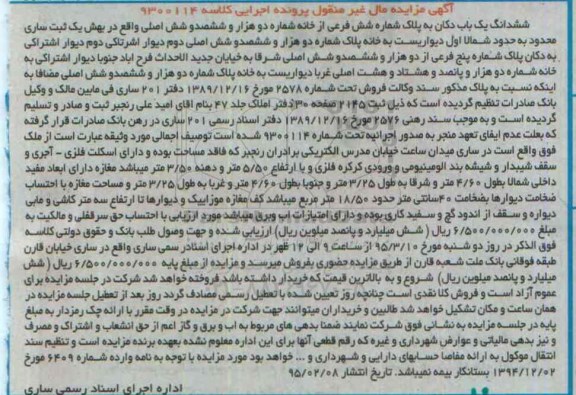 آگهی مزایده مال غیر منقول پرونده اجرایی کلاسه ۹۳۰۰۱۱۴
ششدانگ یک باب دکان به پلاک شماره شش فرعی از خانه شماره دو هزار و ششصدو شش اصلی واقع در بهش یک ثبت ساری
محدود به حدود شمالا اول دیواریست به خانه پلاک شماره دو هزار و ششصدو شش اصلی دوم دیوار اشرتاکی دوم دیوار اشتراکی
به دکان پلاک شماره پنج فرعی از دو هزار و ششصدو شش اصلی شرقا به خیابان جدید الاحداث فرح اباد جنوبا دیوار اشتراکی به
خانه شماره دو هزار و پانصد و هشتاد و هشت اصلی غربا دیواریست به خانه پلاک شماره دو هزار و ششصدو شش اصلی مضافا به
اینکه نسبت به پلاک مذکور سند وکالت فروش تحت شماره ۲۵۷۸ مورخ ۱۳۸۹/۱۲/۱۶ دفتر ۲۰۱ ساری فی مابین مالک و وکیل
بانک صادرات تنظیم گردیده است که ذیل ثبت ۲۱۴۵ صفحه ۳۰ دفتر املاک جلد ۴۷ بنام اقای امید علی رنجبر ثبت و صادر و تسلیم
گردیده است و به موجب سند رهنی ۲۵۷۶ مورخ ۱۳۸۹/۱۲/۱۶ دفتر اسناد رسمی ۲۰۱ ساری در رهن بانک صادرات قرار گرفته
که بعلت عدم ایفای تعهد منجر به صدور اجرائیه تحت شماره ۹۳۰۰۱۱۴ شده است توصیف اجمالی مورد وثیقه عبارت است از ملک
فوق واقع است در ساری میدان ساعت خیابان مدرس الکتریکی برادران رنجبر که فاقد مساحت بوده و دارای اسکلت فلزی – آجری و
سقف شیبدار و شیشه بند الومینیومی و ورودی کرکره فلزی و با ارتفاع ۵/۵۰ متر و دهنه ۳/۵۰ متر میباشد مغازه دارای ابعاد مفید
داخلی شمالا بطول ۴/۶۰ متر و شرقا به طول ۳/۲۵ متر و جنوبا بطول ۴/۶۰ متر و غربا به طول ۳/۲۵ متر و مساحت مغازه با احتساب
ضخامت دیوارها بضخامت ۴۰ سانتی متر حدود ۱۸/۵۰ متر مربع میباشد کف مغازه موزاییک و دیوارها تا ارتفاع سه متر کاشی و مابی
دیواره و سقف از اندود گچ و سفید کاری بوده و دارای امتیازات اب وبرق میباشد مورد ارزیابی با احتساب حق سرقفلی و مالکیت به
مبلغ ۶/۵۰۰/۰۰۰/۰۰۰ ریال ( شش میلیارد و پانصد میلوین ریال) ارزیابی شده و جهت وصول طلب بانک و حقوق دولتی کلاسه
فوق الذکر در روز دو شنبه مورخ ۹۵/۳/۱۰ از ساعت ۹ الی ۱۲ ظهر در اداره اجرای اسنادر سمی ساری واقع در ساری خیابان قارن
طبقه فوقانی بانک ملت شعبه قارن از طریق مزایده حضوری بفروش میرسد و مزایده از مبلغ پایه ۶/۵۰۰/۰۰۰/۰۰۰ ریال (شش
میلیارد و پانصد میلوین ریال) شروع و به بالاترین قیمت که خریدار داشته باشد فروخته خواهد شد شرکت در جلسه مزایده برای
عموم آزاد است و فروش کلا نقدی است چنانچه روز تعیین شده با تعطیل رسمی مصادف گردد روز بعد از تعطیل جلسه مزایده در
همان ساعت و مکان تشکیل خواهد شد طالبین و خریداران میتوانند جهت شرکت در مزایده در وقت مقرر با ارائه چک رمزدار به مبلغ
پایه در جلسه مزایده به نشانی فوق شرکت نمایند ضمنا بدهی های مربوط به اب و برق و گاز اعم از حق انشعاب و اشتراک و مصرف
و نیز بدهی مالیاتی و عوارض شهرداری و غیره که رقم قطعی آنها برای این اداره معلوم نشده بعهده برنده مزایده است و تنظیم سند
انتقال موکول به ارائه مفاصا حسابهای دارایی و شهرداری و ... خواهد بود مورد مزایده با توجه به نامه وارده شماره ۶۴۰۹ مورخ
۱۳۹۴/۱۲/۰۲ بستانکار بیمه نمیباشد. تاریخ انتشار ۹۵/۰۲/۰۸
اداره اجرای اسناد رسمی ساری